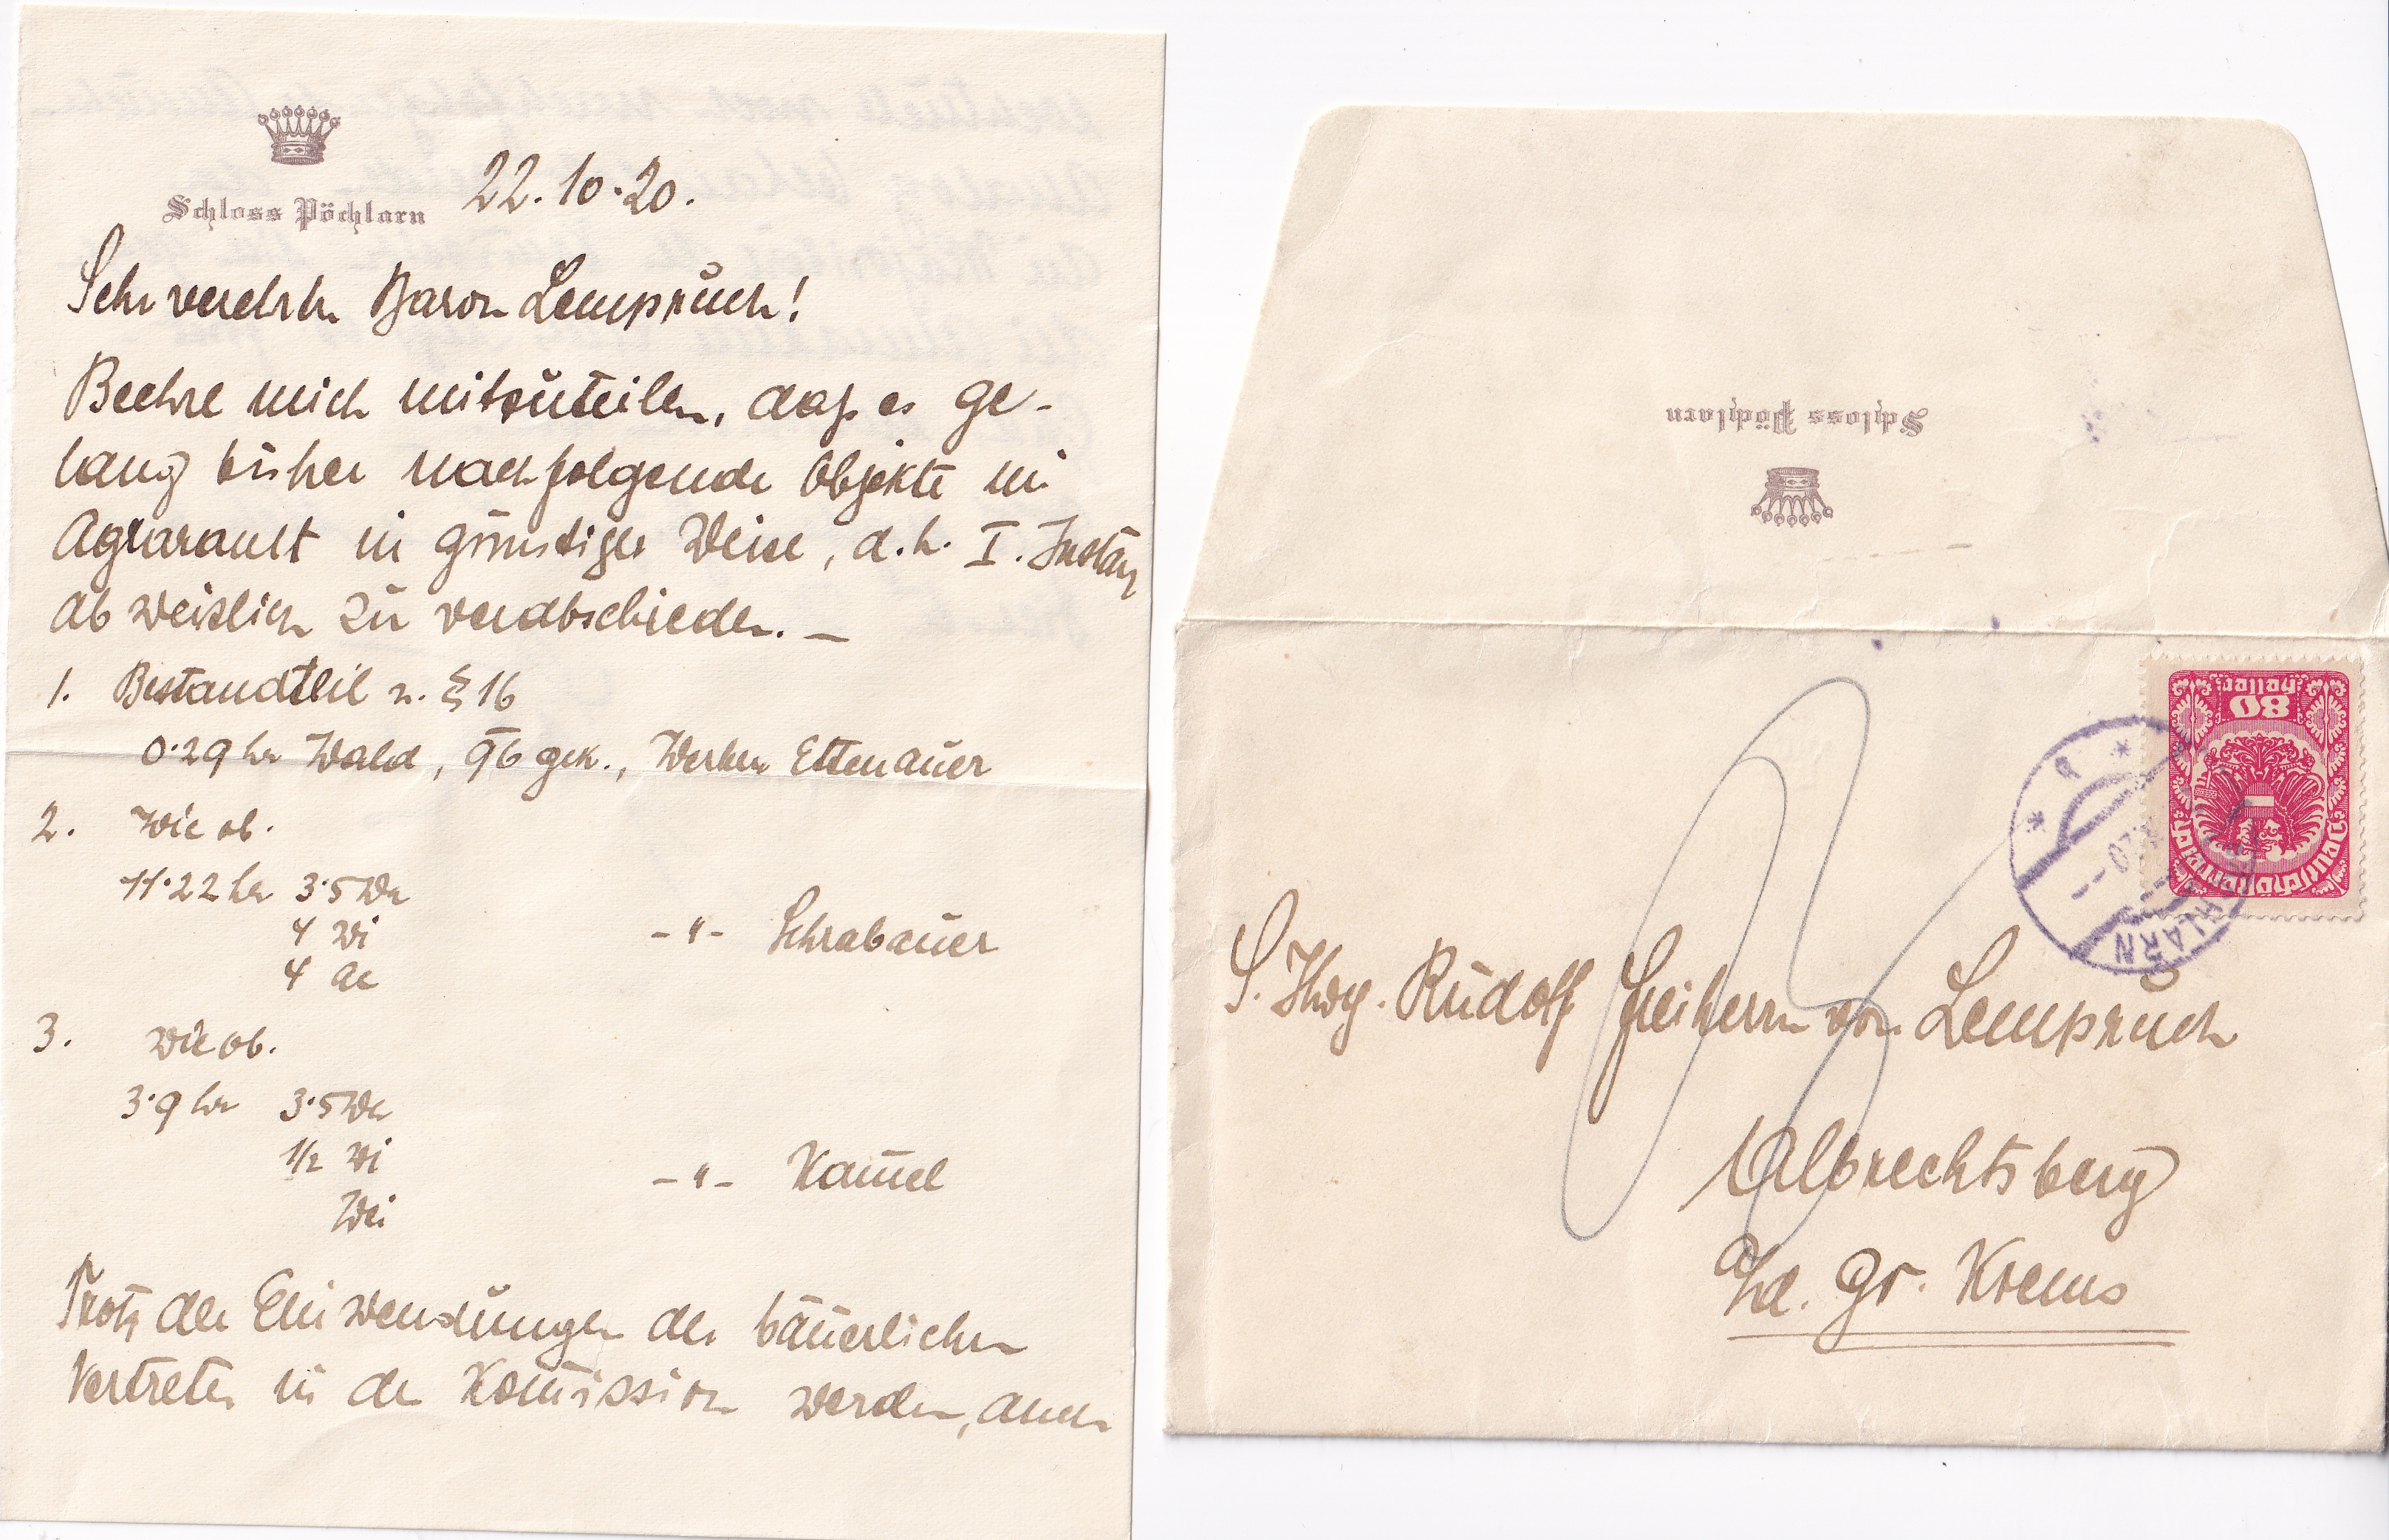 Schloss Pöchlarn 22.10.20.
Sehr verehrter Baron Lempruch!
Beehre mich mitzuteilen, daß es ge-
lang bisher nachfolgende Objekte im
Agraramt in günstiger Weise, d.h. I. Instanz
abweislich zu verabschieden. —
1. Bestandteil n. § 16
0.29 ha Wald, 96 gek., Werber Ettenauer
2. Wie ob.
11.22 ha 3.5 Wa
4 Wi
4 Ae
-"- Schrabauer
3. Wie ob.
3.9 ha 3.5 Wa
1/2 Wi
Wei
-"- Kam̄el
Trotz der Einwendungen der bäuerlichen
Vertreter in der Kom̄ission werden, auch
Schloss Pöchlarn
80
Heller
Deutschösterreich
HLARN
S. Hwg. Rudolf Freiherrn von Lempruch
Albrechtsberg
a/d. Gr. Krems